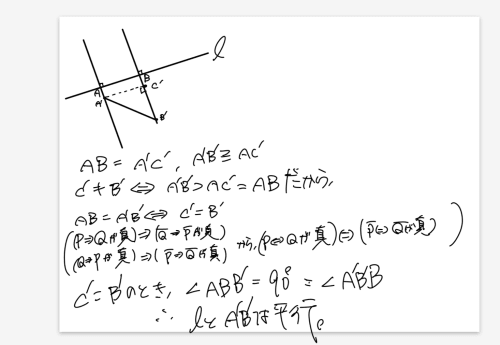 l
A
B
A'
C'
B'
AB = A'C', A'B' ≧ A'C'
C' ≠ B' ⇔ A'B' > A'C' = AB だから,
AB = A'B' ⇔ C' = B'
(P⇒Qが真)⇒(Q̅⇒P̅が真)
(Q⇒Pが真)⇒(P̅⇒Q̅が真) から, (P⇔Qが真)⇔(P̅⇔Q̅が真)
C' = B'のとき, ∠ABB' = 90° = ∠A'B'B
∴ lとA'B'は平行。